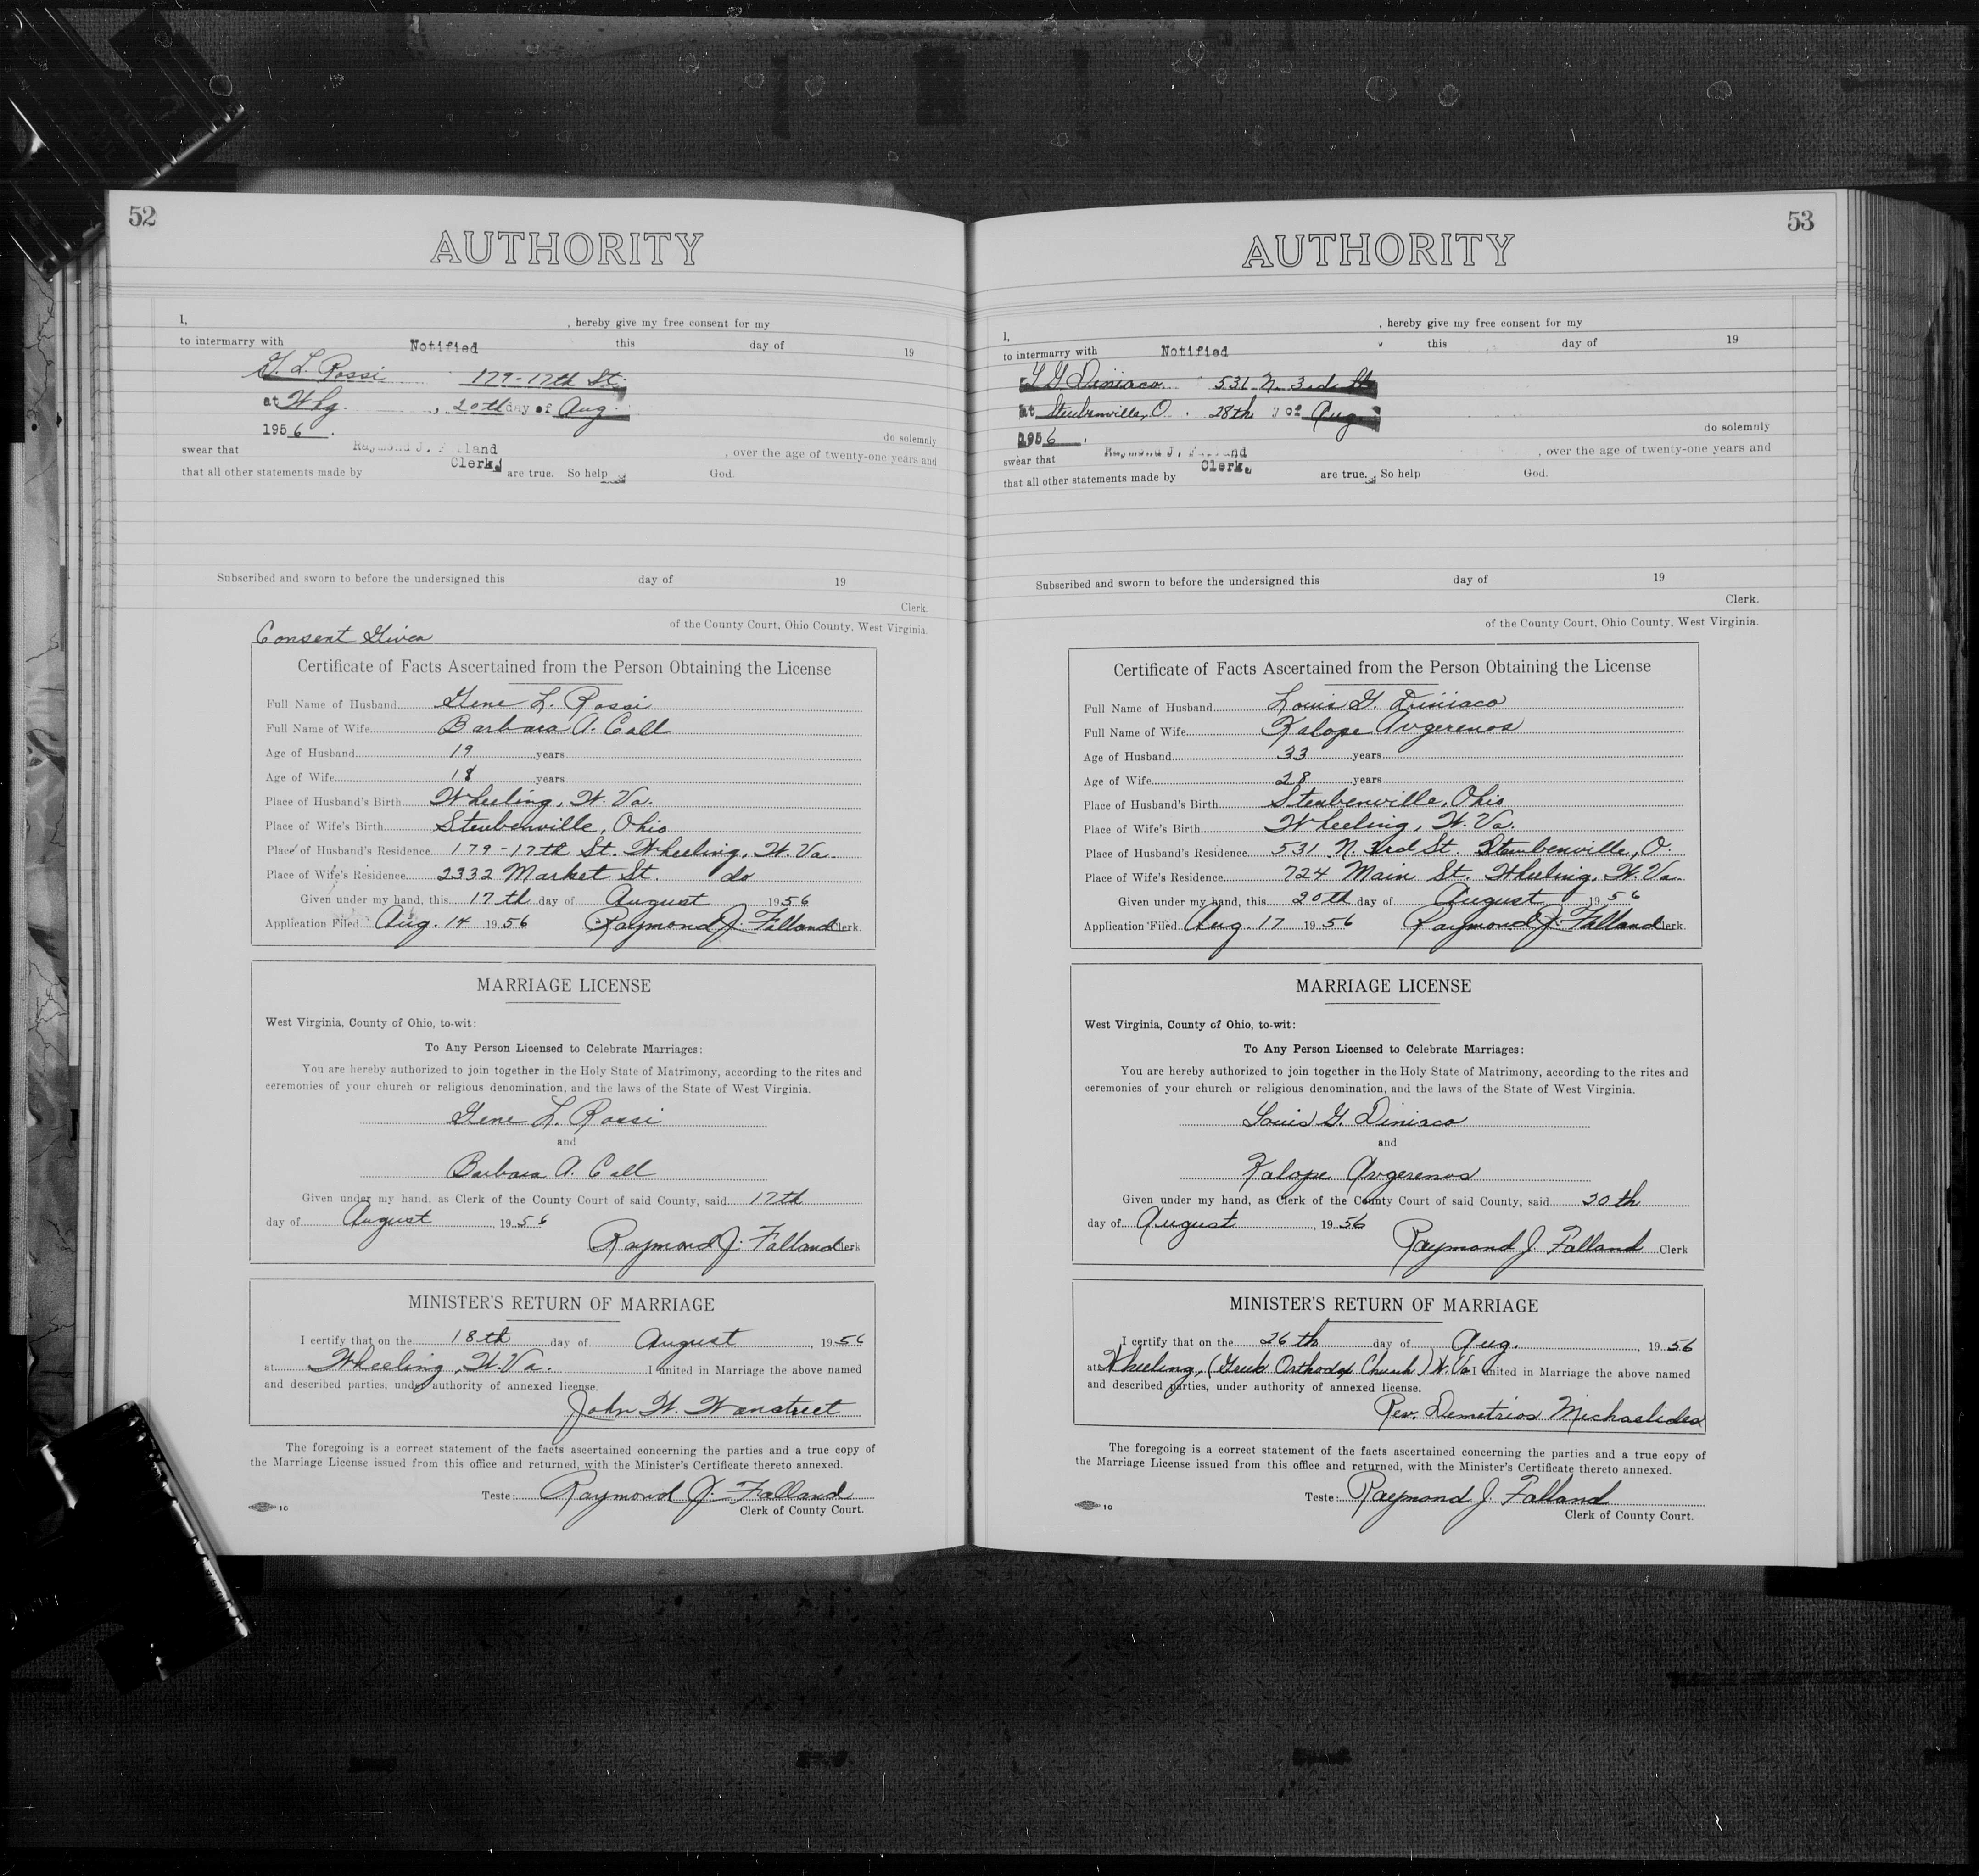 52
AUTHORITY
I, , hereby give my free consent for my
to intermarry with Notified this day of 19
G. L. Rossi 179-17th St.
at Whg. , 20th day of Aug.
1956 .
do solemnly
swear that Raymond J. Falland , over the age of twenty-one years and
Clerk.
that all other statements made by are true. So help God.
Subscribed and sworn to before the undersigned this day of 19
Clerk.
of the County Court, Ohio County, West Virginia.
Consent Given
Certificate of Facts Ascertained from the Person Obtaining the License
Full Name of Husband Gene L. Rossi
Full Name of Wife Barbara A. Call
Age of Husband 19 years
Age of Wife 18 years
Place of Husband's Birth Wheeling, W. Va.
Place of Wife's Birth Steubenville, Ohio
Place of Husband's Residence 179-17th St. Wheeling, W. Va.
Place of Wife's Residence 2332 Market St. do
Given under my hand, this 17th day of August 1956
Application Filed Aug. 14 1956 Raymond J. Falland Clerk.
MARRIAGE LICENSE
West Virginia, County of Ohio, to-wit:
To Any Person Licensed to Celebrate Marriages:
You are hereby authorized to join together in the Holy State of Matrimony, according to the rites and
ceremonies of your church or religious denomination, and the laws of the State of West Virginia.
Gene L. Rossi
and
Barbara A. Call
Given under my hand, as Clerk of the County Court of said County, said 17th
day of August , 1956
Raymond J. Falland Clerk
MINISTER'S RETURN OF MARRIAGE
I certify that on the 18th day of August , 1956
at Wheeling, W. Va. I united in Marriage the above named
and described parties, under authority of annexed license.
John W. Wanstreet
The foregoing is a correct statement of the facts ascertained concerning the parties and a true copy of
the Marriage License issued from this office and returned, with the Minister's Certificate thereto annexed.
Teste: Raymond J. Falland
Clerk of County Court.
10
53
AUTHORITY
I, , hereby give my free consent for my
to intermarry with Notified this day of 19
L G Diniaco 531 N. 3rd St
at Steubenville, O. 28th y of Aug
1956 .
do solemnly
swear that Raymond J. Falland , over the age of twenty-one years and
Clerk.
that all other statements made by are true. So help God.
Subscribed and sworn to before the undersigned this day of 19
Clerk.
of the County Court, Ohio County, West Virginia.
Certificate of Facts Ascertained from the Person Obtaining the License
Full Name of Husband Louis G. Diniaco
Full Name of Wife Kalope Avgerenos
Age of Husband 33 years
Age of Wife 28 years
Place of Husband's Birth Steubenville, Ohio
Place of Wife's Birth Wheeling, W. Va.
Place of Husband's Residence 531 N. 3rd St. Steubenville, O.
Place of Wife's Residence 724 Main St. Wheeling, W. Va.
Given under my hand, this 20th day of August 1956
Application Filed Aug. 17 1956 Raymond J. Falland Clerk.
MARRIAGE LICENSE
West Virginia, County of Ohio, to-wit:
To Any Person Licensed to Celebrate Marriages:
You are hereby authorized to join together in the Holy State of Matrimony, according to the rites and
ceremonies of your church or religious denomination, and the laws of the State of West Virginia.
Louis G. Diniaco
and
Kalope Avgerenos
Given under my hand, as Clerk of the County Court of said County, said 20th
day of August , 1956
Raymond J. Falland Clerk
MINISTER'S RETURN OF MARRIAGE
I certify that on the 26th day of Aug. , 1956
at Wheeling, (Greek Orthodox Church) W. Va. I united in Marriage the above named
and described parties, under authority of annexed license.
Rev. Demetrios Michaelides
The foregoing is a correct statement of the facts ascertained concerning the parties and a true copy of
the Marriage License issued from this office and returned, with the Minister's Certificate thereto annexed.
Teste: Raymond J. Falland
Clerk of County Court.
10